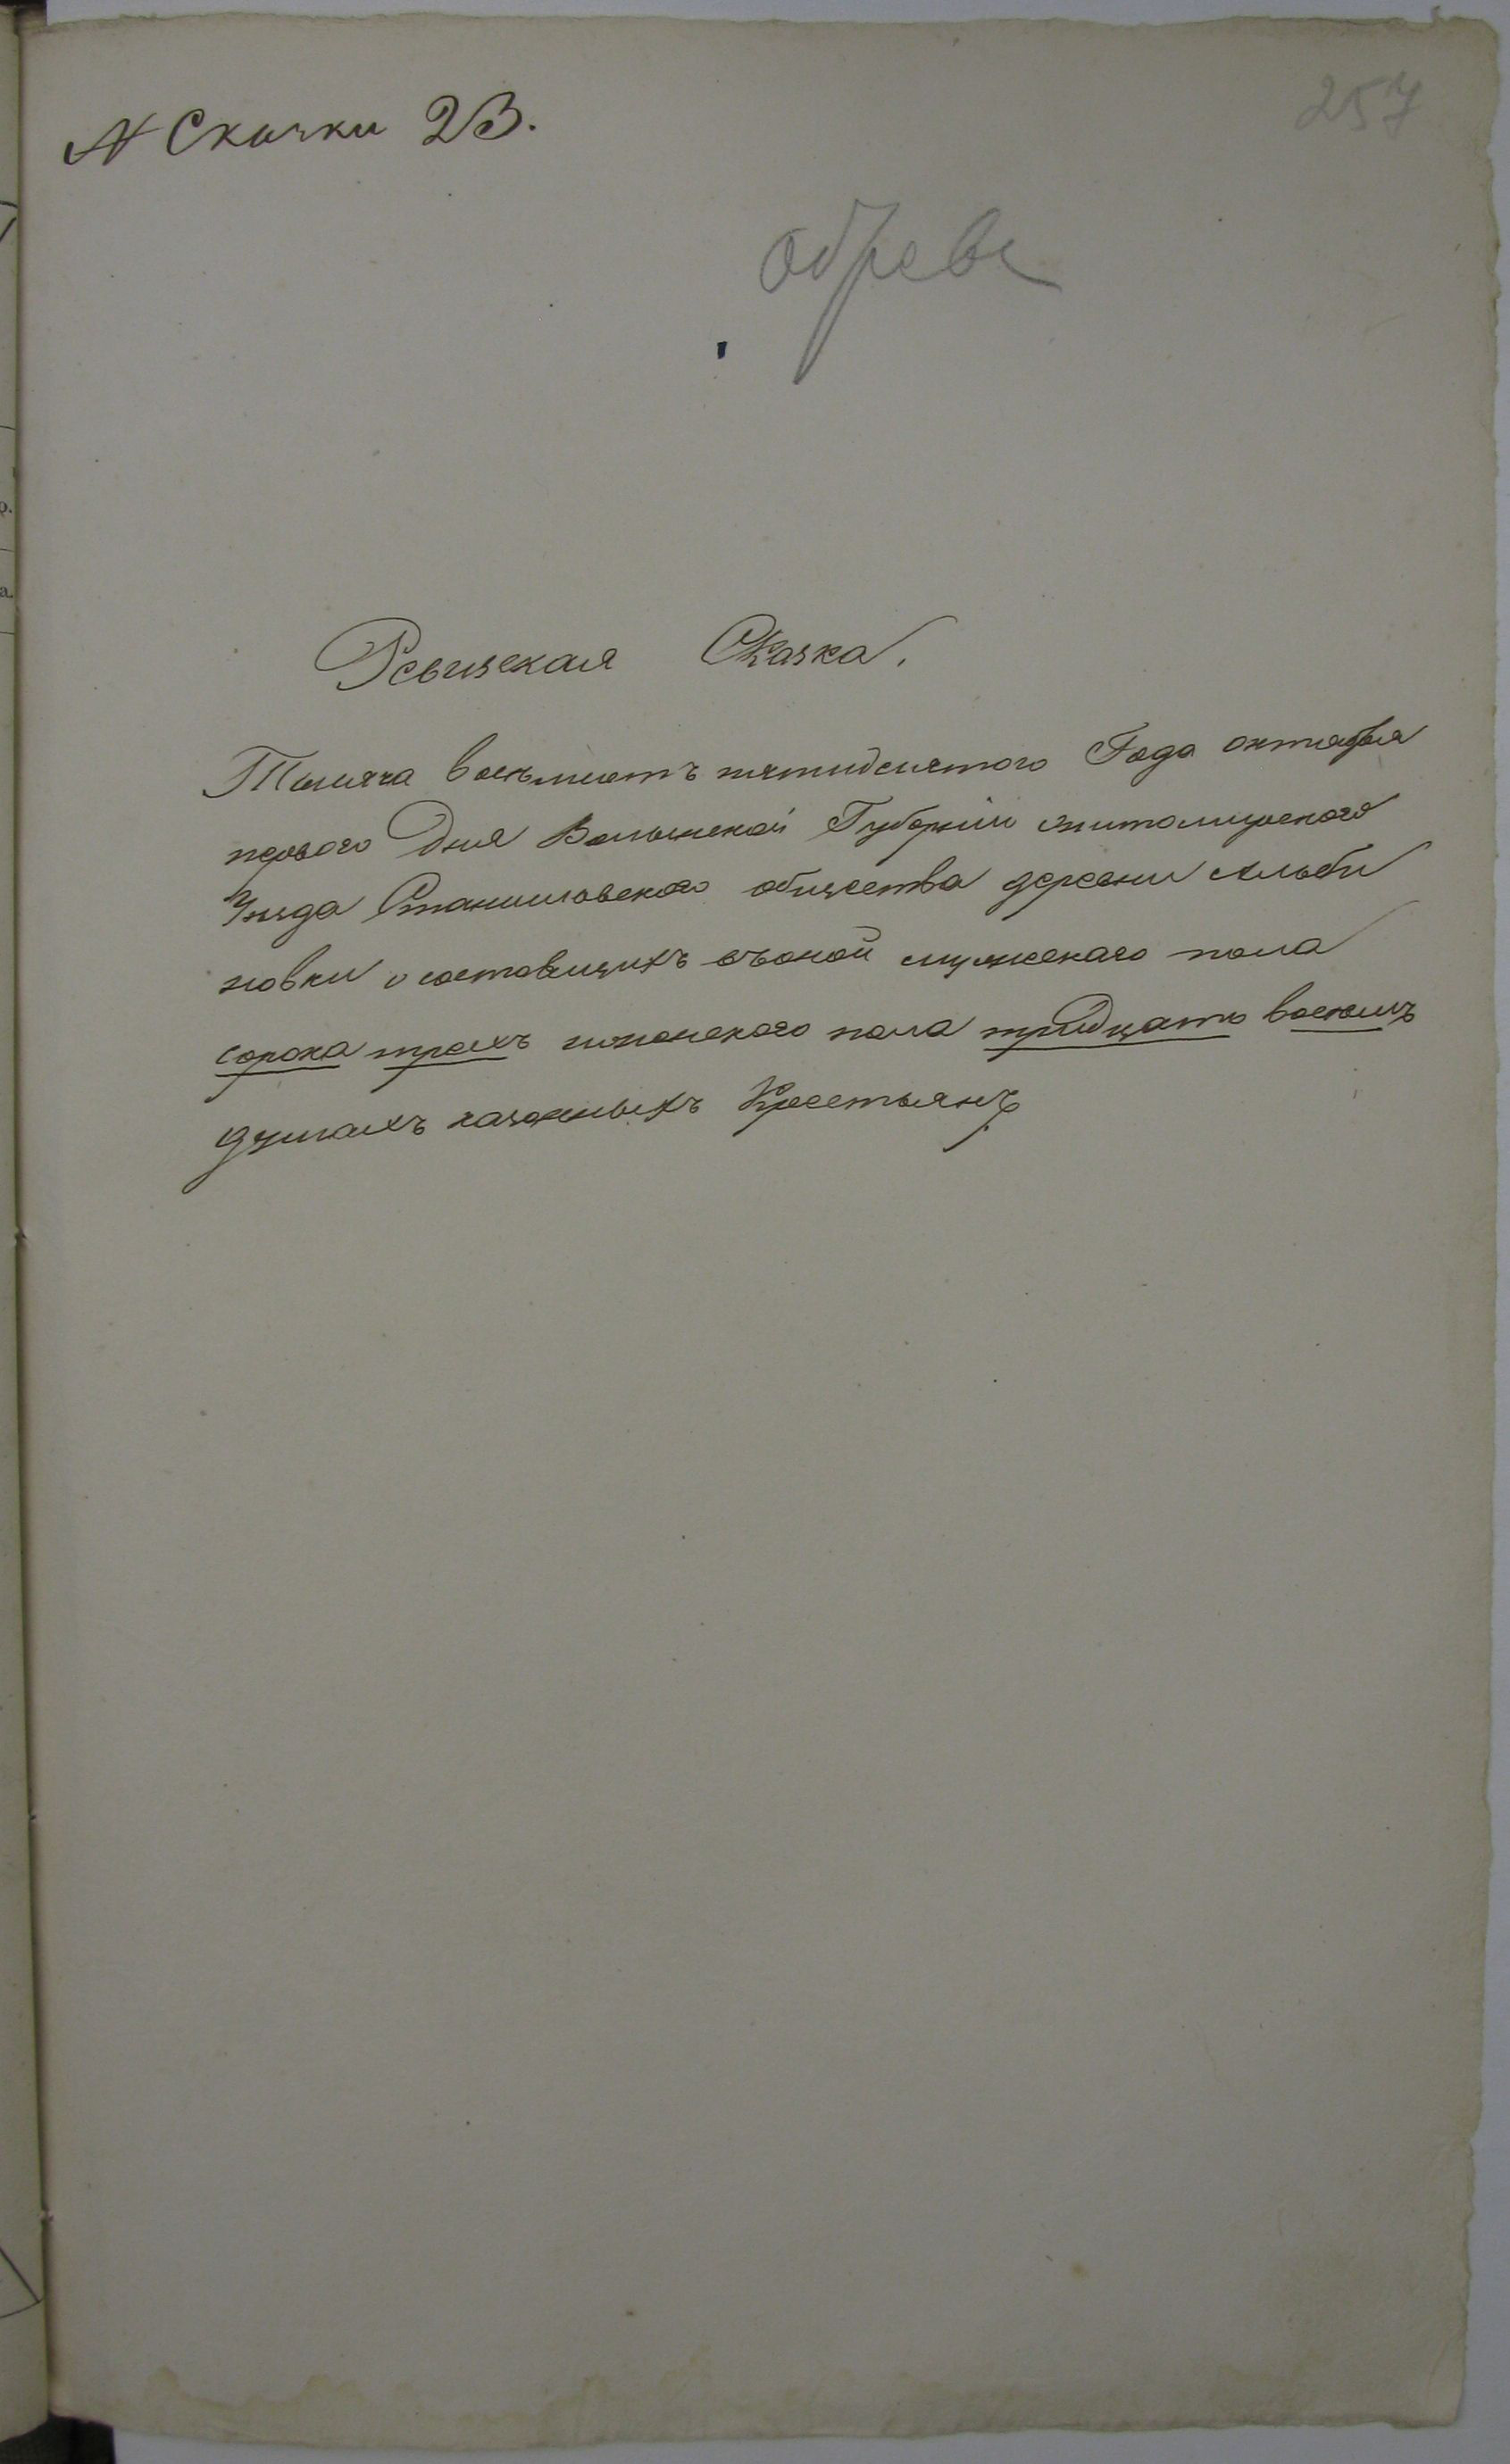 257
N Скаски 23.
обреви
Ревизская Сказка.
Тысяча восьмьсотъ пятидесятого Года октября
первого Дня Волынской Губернии житомирского
Уезда Станишовского общества деревни Альби
новки о состоящихъ въ оной мужескаго пола
сорока трехъ женского пола тридцать восьмъ
душахъ казенныхъ Крестьянъ